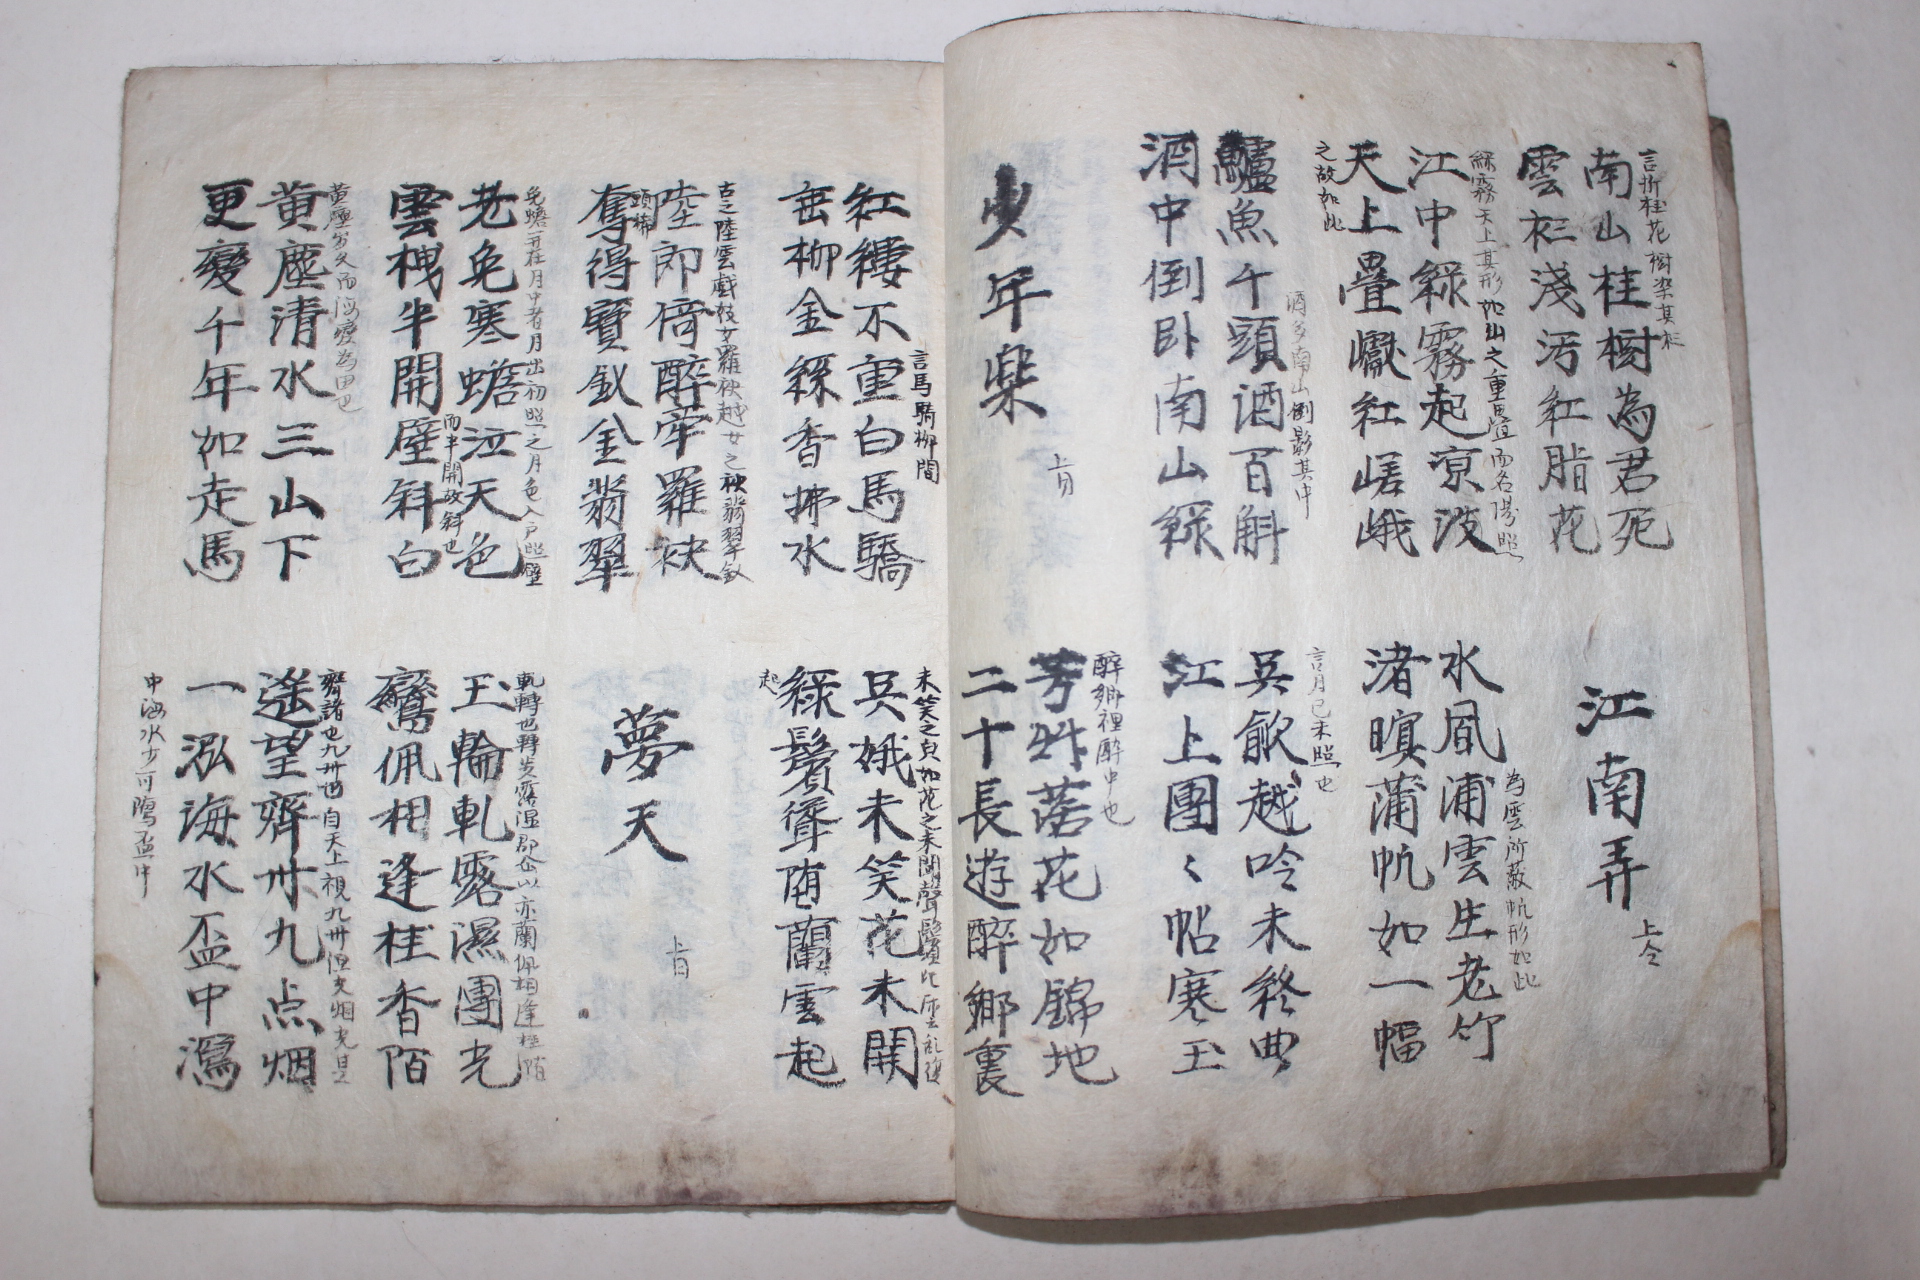 言折桂花樹染其衫
南山桂樹為君死
雲衫淺汚紅脂花
江南弄 上仝
綵霧天上其形如山之重疊而名陽照
江中綠霧起凉波
天上疊巘紅嵯峨
之故如此
為雲所蔽帆形如此
水風浦雲生老竹
渚暝蒲帆如一幅
酒多南山倒影其中
鱸魚千頭酒百斛
酒中倒卧南山綠
言月已未照也
吳歈越吟未終曲
江上團〻帖寒玉
少年樂 上同
醉鄉裡醉中也
芳草落花如錦地
二十長遊醉鄉裏
言馬驕柳間
紅纓不重白馬驕
垂柳金絲香拂水
未笑之皃如花之未開聲鬢
吳娥未笑花未開
綠鬢聳墮蘭雲起
起
古之陸雲戲妓女羅袂越女之袂翡翠釵
陸郎倚醉牽羅袂
頭梳
奪得寶釵金翡翠
夢天 上同
兔蟾並在月中者月出初照之月色入戶照壁
老兔寒蟾泣天色
而半開故斜也
雲樓半開壁斜白
軋轉也轉炎露湿 亦蘭佩相逢桂陌
玉輪軋露濕團光
鸞佩相逢桂香陌
黃塵歲久而海變為田也
黃塵清水三山下
更變千年如走馬
齊諸也九州 自天上視九州但
遙望齊州九点烟
一泓海水盃中瀉
中海水少可瀉盃中